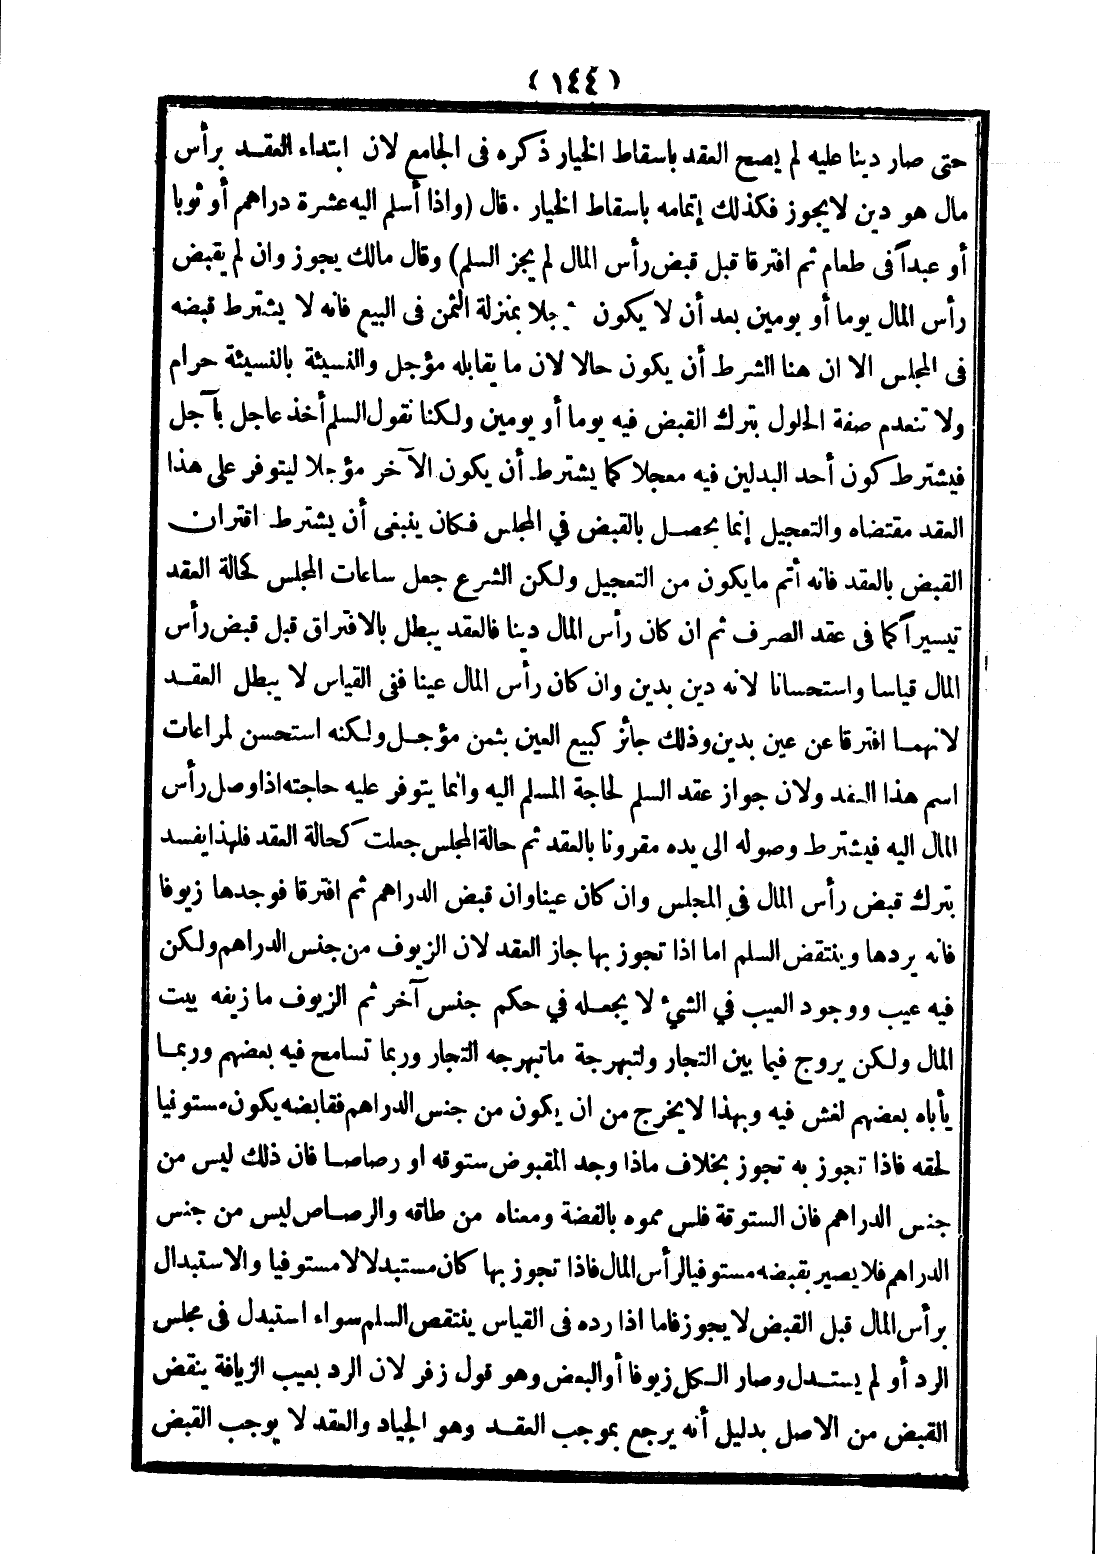 (١٤٤)
حتى صار دينا عليه لم يصح العقد باسقاط الخيار ذكره فى الجامع لان ابتداء العقد برأس
مال هو دين لايجوز فكذلك إتمامه باسقاط الخيار . قال (واذا أسلم اليه عشرة دراهم أو ثوبا
أو عبداً فى طعام ثم افترقا قبل قبض رأس المال لم يجز السلم) وقال مالك يجوز وان لم يقبض
رأس المال يوما أو يومين بعد أن لا يكون بمنزلة الثمن فى البيع فانه لا يشترط قبضه
فى المجلس الا ان هنا الشرط أن يكون حالا لان ما يقابله مؤجل والنسيئة بالنسيئة حرام
ولا تنعدم صفة الحلول بترك القبض فيه يوما أو يومين ولكنا نقول السلم أخذ عاجل بآجل
فيشترط كون أحد البدلين فيه معجلا كما يشترط أن يكون الآخر مؤجلا ليتوفر على هذا
العقد مقتضاه والتعجيل إنما يحصل بالقبض في المجلس فكان ينبغى أن يشترط اقتران
القبض بالعقد فانه أتم مايكون من التعجيل ولكن الشرع جعل ساعات المجلس كحالة العقد
تيسيراً كما فى عقد الصرف ثم ان كان رأس المال دينا فالعقد يبطل بالافتراق قبل قبض رأس
المال قياسا واستحسانا لانه دين بدين وان كان رأس المال عينا ففى القياس لا يبطل العقد
لانهما افترقا عن عين بدين وذلك جائز كبيع العين بثمن مؤجل ولكنه استحسن لمراعات
اسم هذا العقد ولان جواز عقد السلم لحاجة المسلم اليه وانما يتوفر عليه حاجته اذا وصل رأس
المال اليه فيشترط وصوله الى يده مقرونا بالعقد ثم حالة المجلس جعلت كحالة العقد فلهذا يفسد
بترك قبض رأس المال في المجلس وان كان عينا وان قبض الدراهم ثم افترقا فوجدها زيوفا
فانه يردها وينتقض السلم اما اذا تجوز بها جاز العقد لان الزيوف من جنس الدراهم ولكن
فيه عيب ووجود العيب في الشيء لا يجعله في حكم جنس آخر ثم الزيوف ما زيفه بيت
المال ولكن يروج فيما بين التجار ولتبهرجة ماتبهرجه التجار وربما تسامح فيه بعضهم وربما
يأباه بعضهم لغش فيه وبهذا لايخرج من ان يكون من جنس الدراهم فقابضه يكون مستوفيا
لحقه فاذا تجوز به تجوز بخلاف ماذا وجد المقبوض ستوقه او رصاصا فان ذلك ليس من
جنس الدراهم فان الستوقة فلس مموه بالفضة ومعناه من طاقه والرصاص ليس من جنس
الدراهم فلا يصير بقبضه مستوفيا لرأس المال فاذا تجوز بها كان مستبدلا لا مستوفيا والاستبدال
برأس المال قبل القبض لا يجوز فاما اذا رده فى القياس ينتقص السلم سواء استبدل فى مجلس
الرد أو لم يستبدل وصار الكل زيوفا أو البعض وهو قول زفر لان الرد بعيب الزيافة ينقض
القبض من الاصل بدليل أنه يرجع بموجب العقد وهو الجياد والعقد لا يوجب القبض